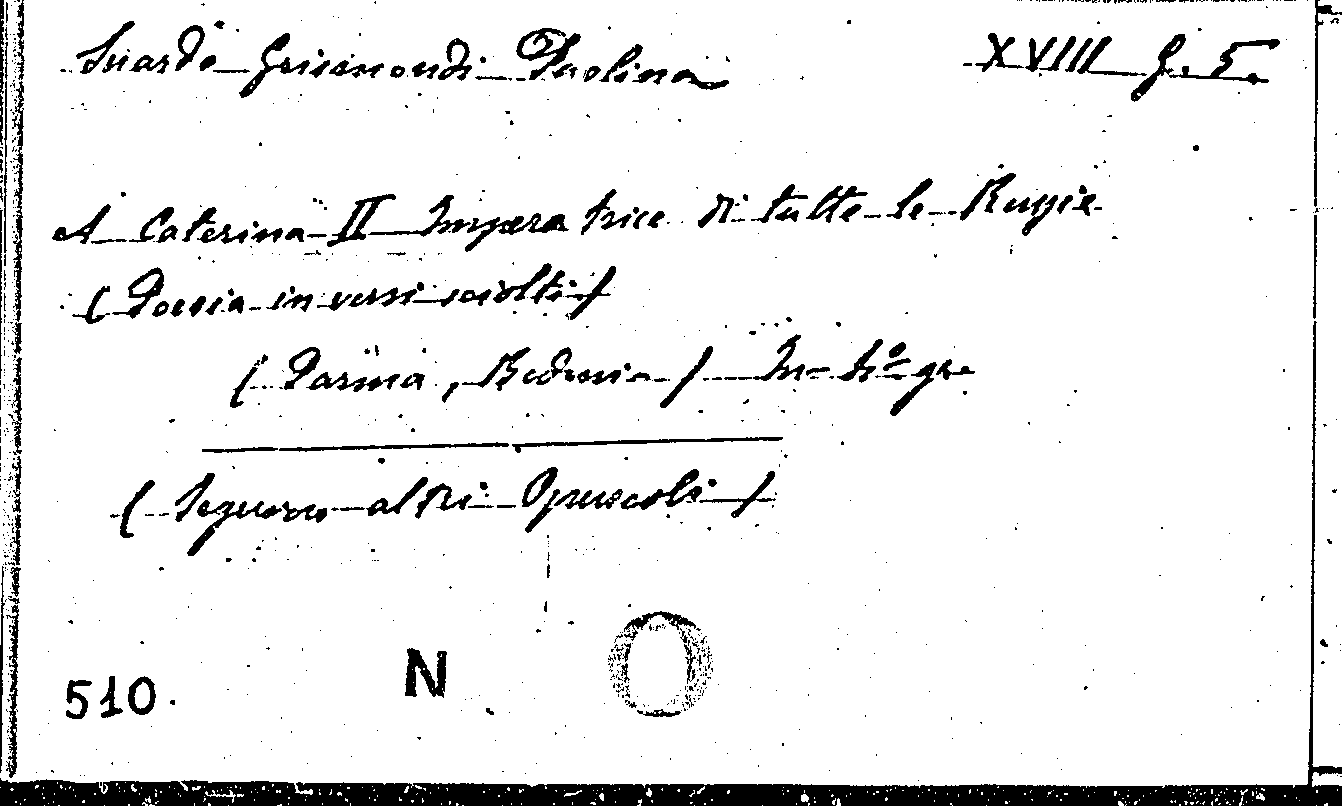 Suardo Grismondi Paolina XVIII G. 5.
A Caterina II Imperatrice di tutte le Russie
(Poesia in versi sciolti)
(Parma, Bodoni) In-4º gr.
(Seguono altri Opuscoli)
510. N O